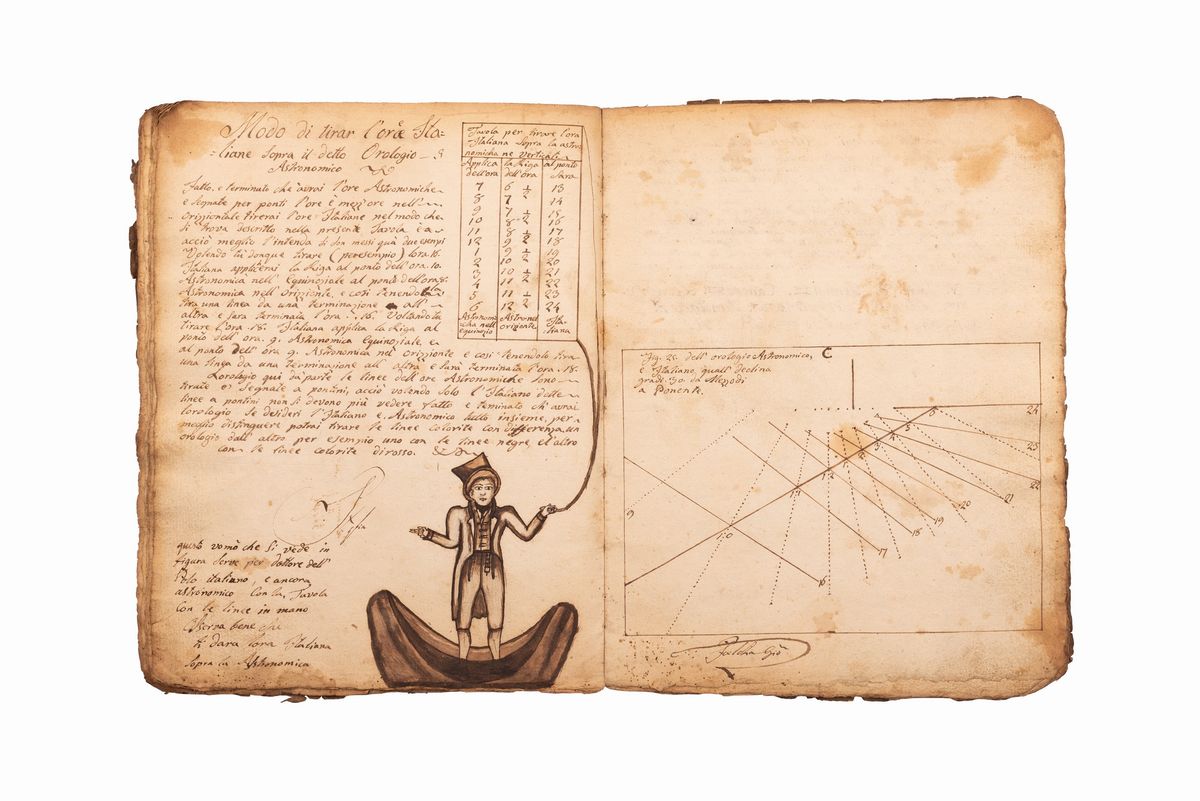 Modo di tirar l'ore Ita=
=liane sopra il detto Orologio
Astronomico
Fatto, e terminato che avrai l'ore Astronomiche
e segnate per ponti l'ore è mezz'ore nell'
Orizzontale tirerai l'ore Italiane nel modo che
si trova descritto nella presente Tavola è a
acciò meglio l'intenda si son messi quà due esempi
Volendo tù donque tirare (per esempio) l'ora 16.
Italiana applicerai la Riga al ponto dell'ora. 10.
Astronomica nell' Equinoziale al ponto dell'ora 8.
Astronomica nell' Orizzonte, e così tenendola
tira una linea da una terminazione all'
altra e sara terminata l'ora . 16. Voltando la
tirare l'ora. 18. Italiana applica la Riga al
ponto dell' ora. 9. Astronomica Equinoziale, e
al ponto dell' ora 9. Astronomica nel' Orizzonte e cosi tenendolo tira
una linea da una terminazione all' altra e sarà terminata l'ora. 18.
L'orologio quì da parte le linee dell'ore Astronomiche sono
tirate o' segnate a pontini, acciò volendo solo l'Italiano dette
linee a pontini non si devono più vedere fatto e teminato ch'avrai
l'orologio se desideri l'Italiano e Astronomico tutto insieme, per
meglio distinguere potrai tirare le linee colorite con differenza, un
orologio dall' altro per esempio uno con le linee negre, el'altro
con le linee colorite di rosso.
Tavola per tirare l'ora
Italiana sopra la astro
nomicha ne Verticali
Applica la Riga al ponto
dell'ora dell'ora Sara
7 6 ½ 13
8 7 14
9 7 ½ 15
10 8 16
11 8 ½ 17
12 9 18
1 9 ½ 19
2 10 20
3 10 ½ 21
4 11 22
5 11 ½ 23
6 12 24
Astrono Astro nel Ita=
micha nell orizonte liana
equinozio
questo vomo che si vede in
figura serve per dottore dell'
Polo italiano, e ancora
astronomico con la Tavola
con le linee in mano
Oserva bene che
ti dara l'ora Italiana
sopra la Astronomica
Fig. 26. dell' orologio Astronomico,
e Italiano, quall' declina
gradi 30. da Mezodi
a Ponente.
C
24
23
22
21
20
19
18
17
16
9
10
11
12
1
2
3
4
5